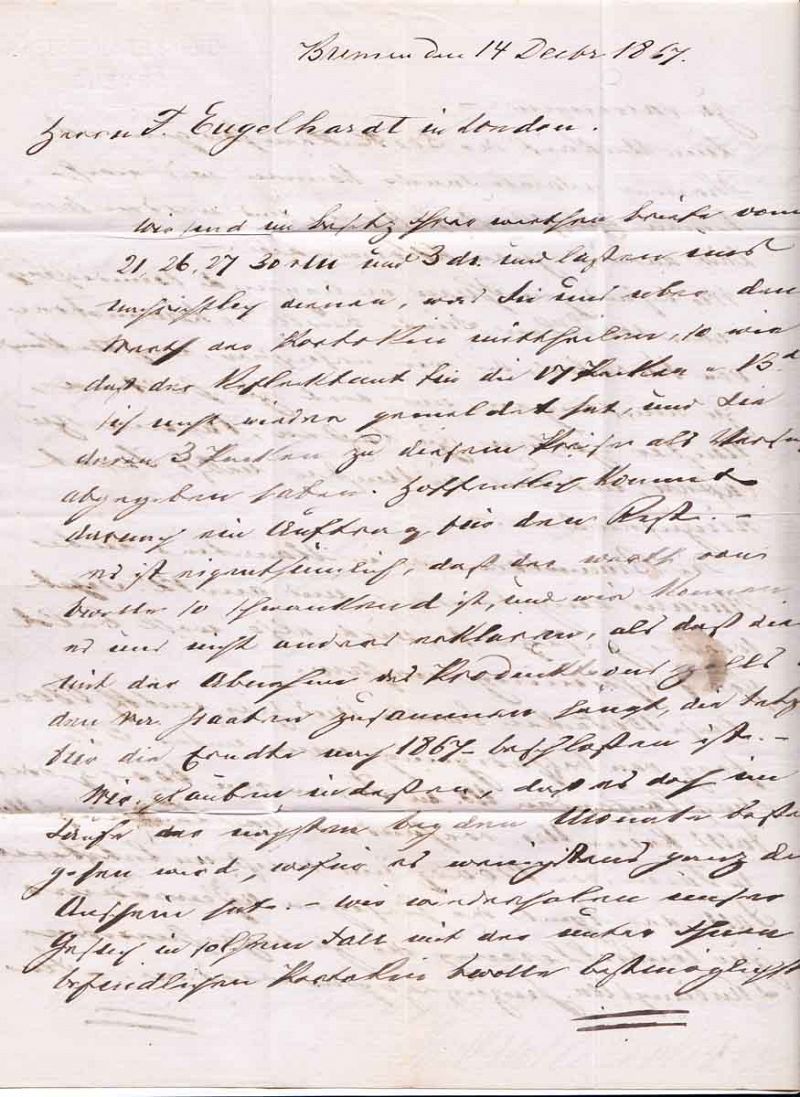 Bremen den 14 Decbr 1867.
Herrn F. Engelhardt in London.
Wir sind im Besitz Ihrer werthen briefe vom
21, 26, 27 30 und 3 ds. und laßen uns
nachrichtlich dienen, was Sie uns über den
werth der mittheilen, so wie
daß der Reflecktant für die 17 Packen a
sich nicht wieder gemeldet hat, und Sie
deren 3 Packen zu diesem Preise als
abgegeben haben. Hoffentlich kommt
darauf ein Auftrag für den Rest. –
es ist eigenthümlich, daß der werth von
bwolle so schwankend ist, und wir können
es uns nicht anders erklären, als daß dies
mit der Abnahme des Produkten zolls
den Ver. Staaten zusammen hängt, die
für die Erndte nach 1867 beschloßen ist. –
Wir glauben indeßen, daß es doch im
Laufe der nächsten beyden Monate
gehen wird, wofür es wenigstens ganz den
Anschein hat. – wir wiederholen unser
Gesuch in solchem Fall mit der unter Ihnen
befindlichen bwolle bestmöglichst